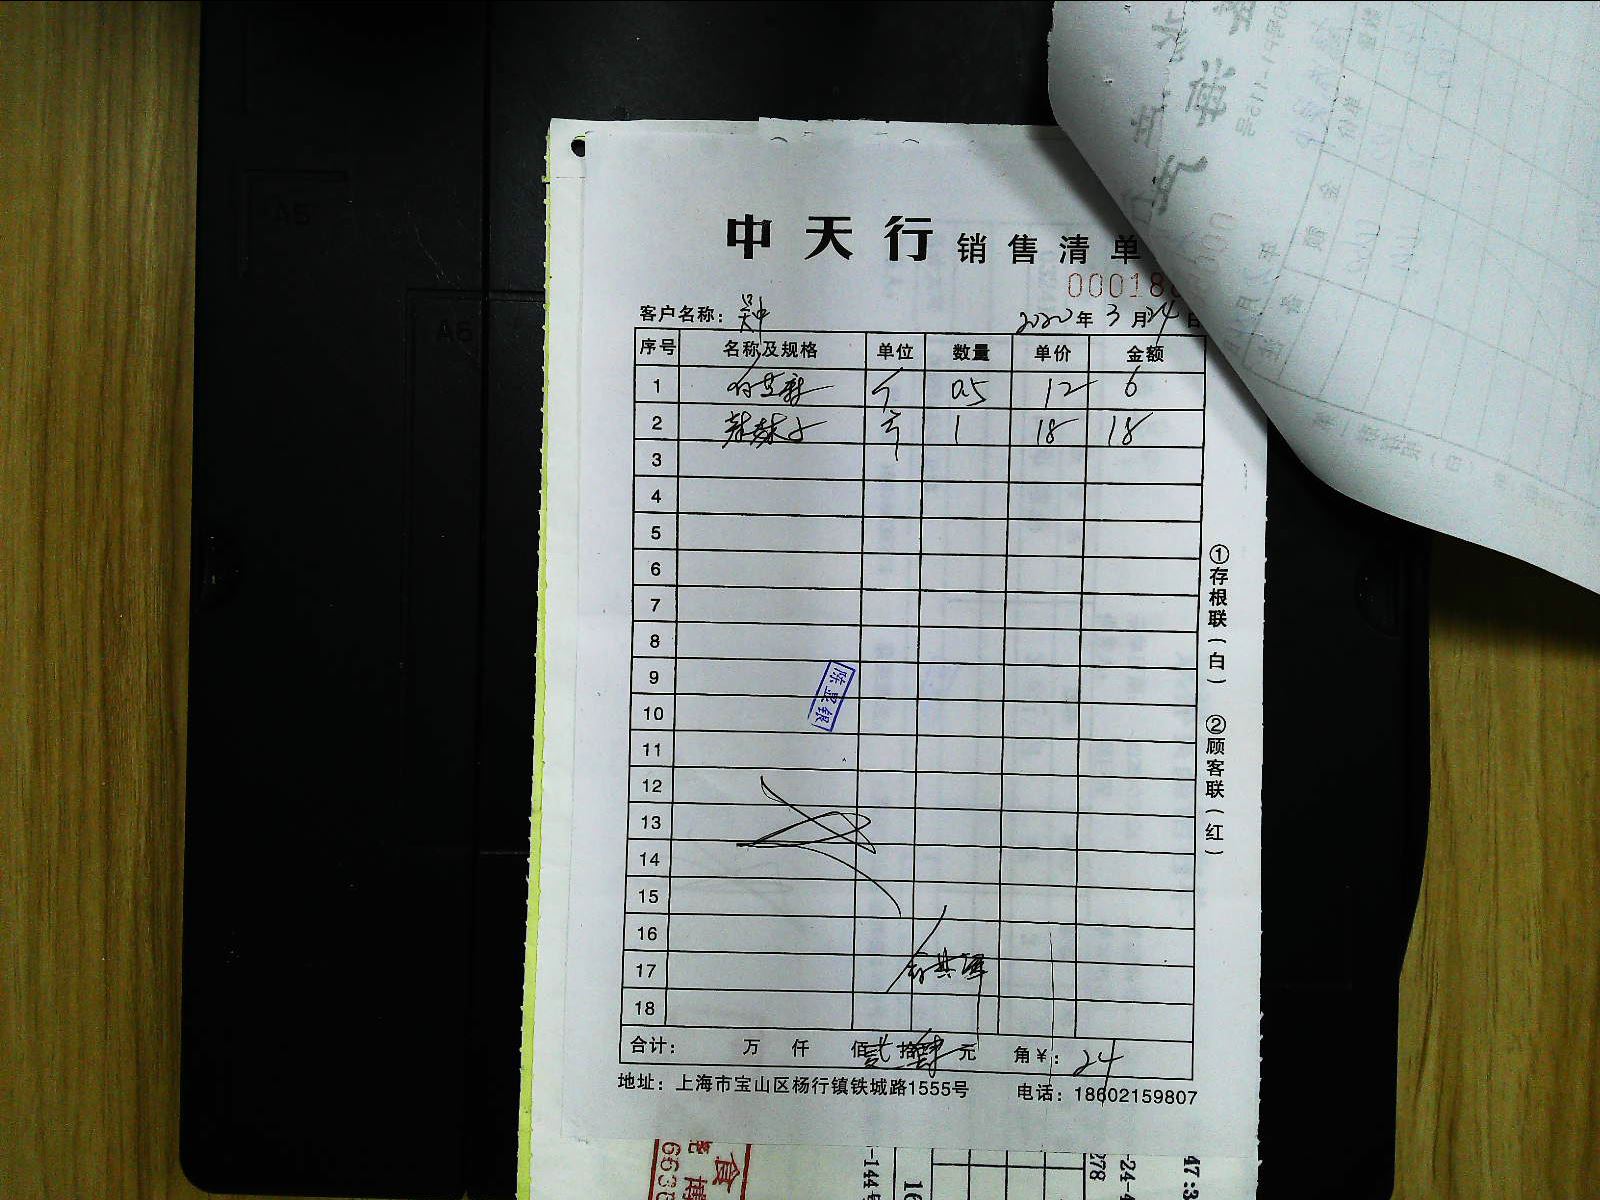 中天行 销售清单
00018
客户名称: 吴中 2020年 3 月 24 日
序号 名称及规格 单位 数量 单价 金额
1 白芝麻 斤 0.5 12 6
2 斤 1 18 18
3
4
5
6
7
8
9
10
11
12
13
14
15
16
17
18
合计: 万 仟 佰 贰 拾 肆 元 角 ¥: 24
地址: 上海市宝山区杨行镇铁城路1555号 电话: 18602159807
①存根联(白) ②顾客联(红)